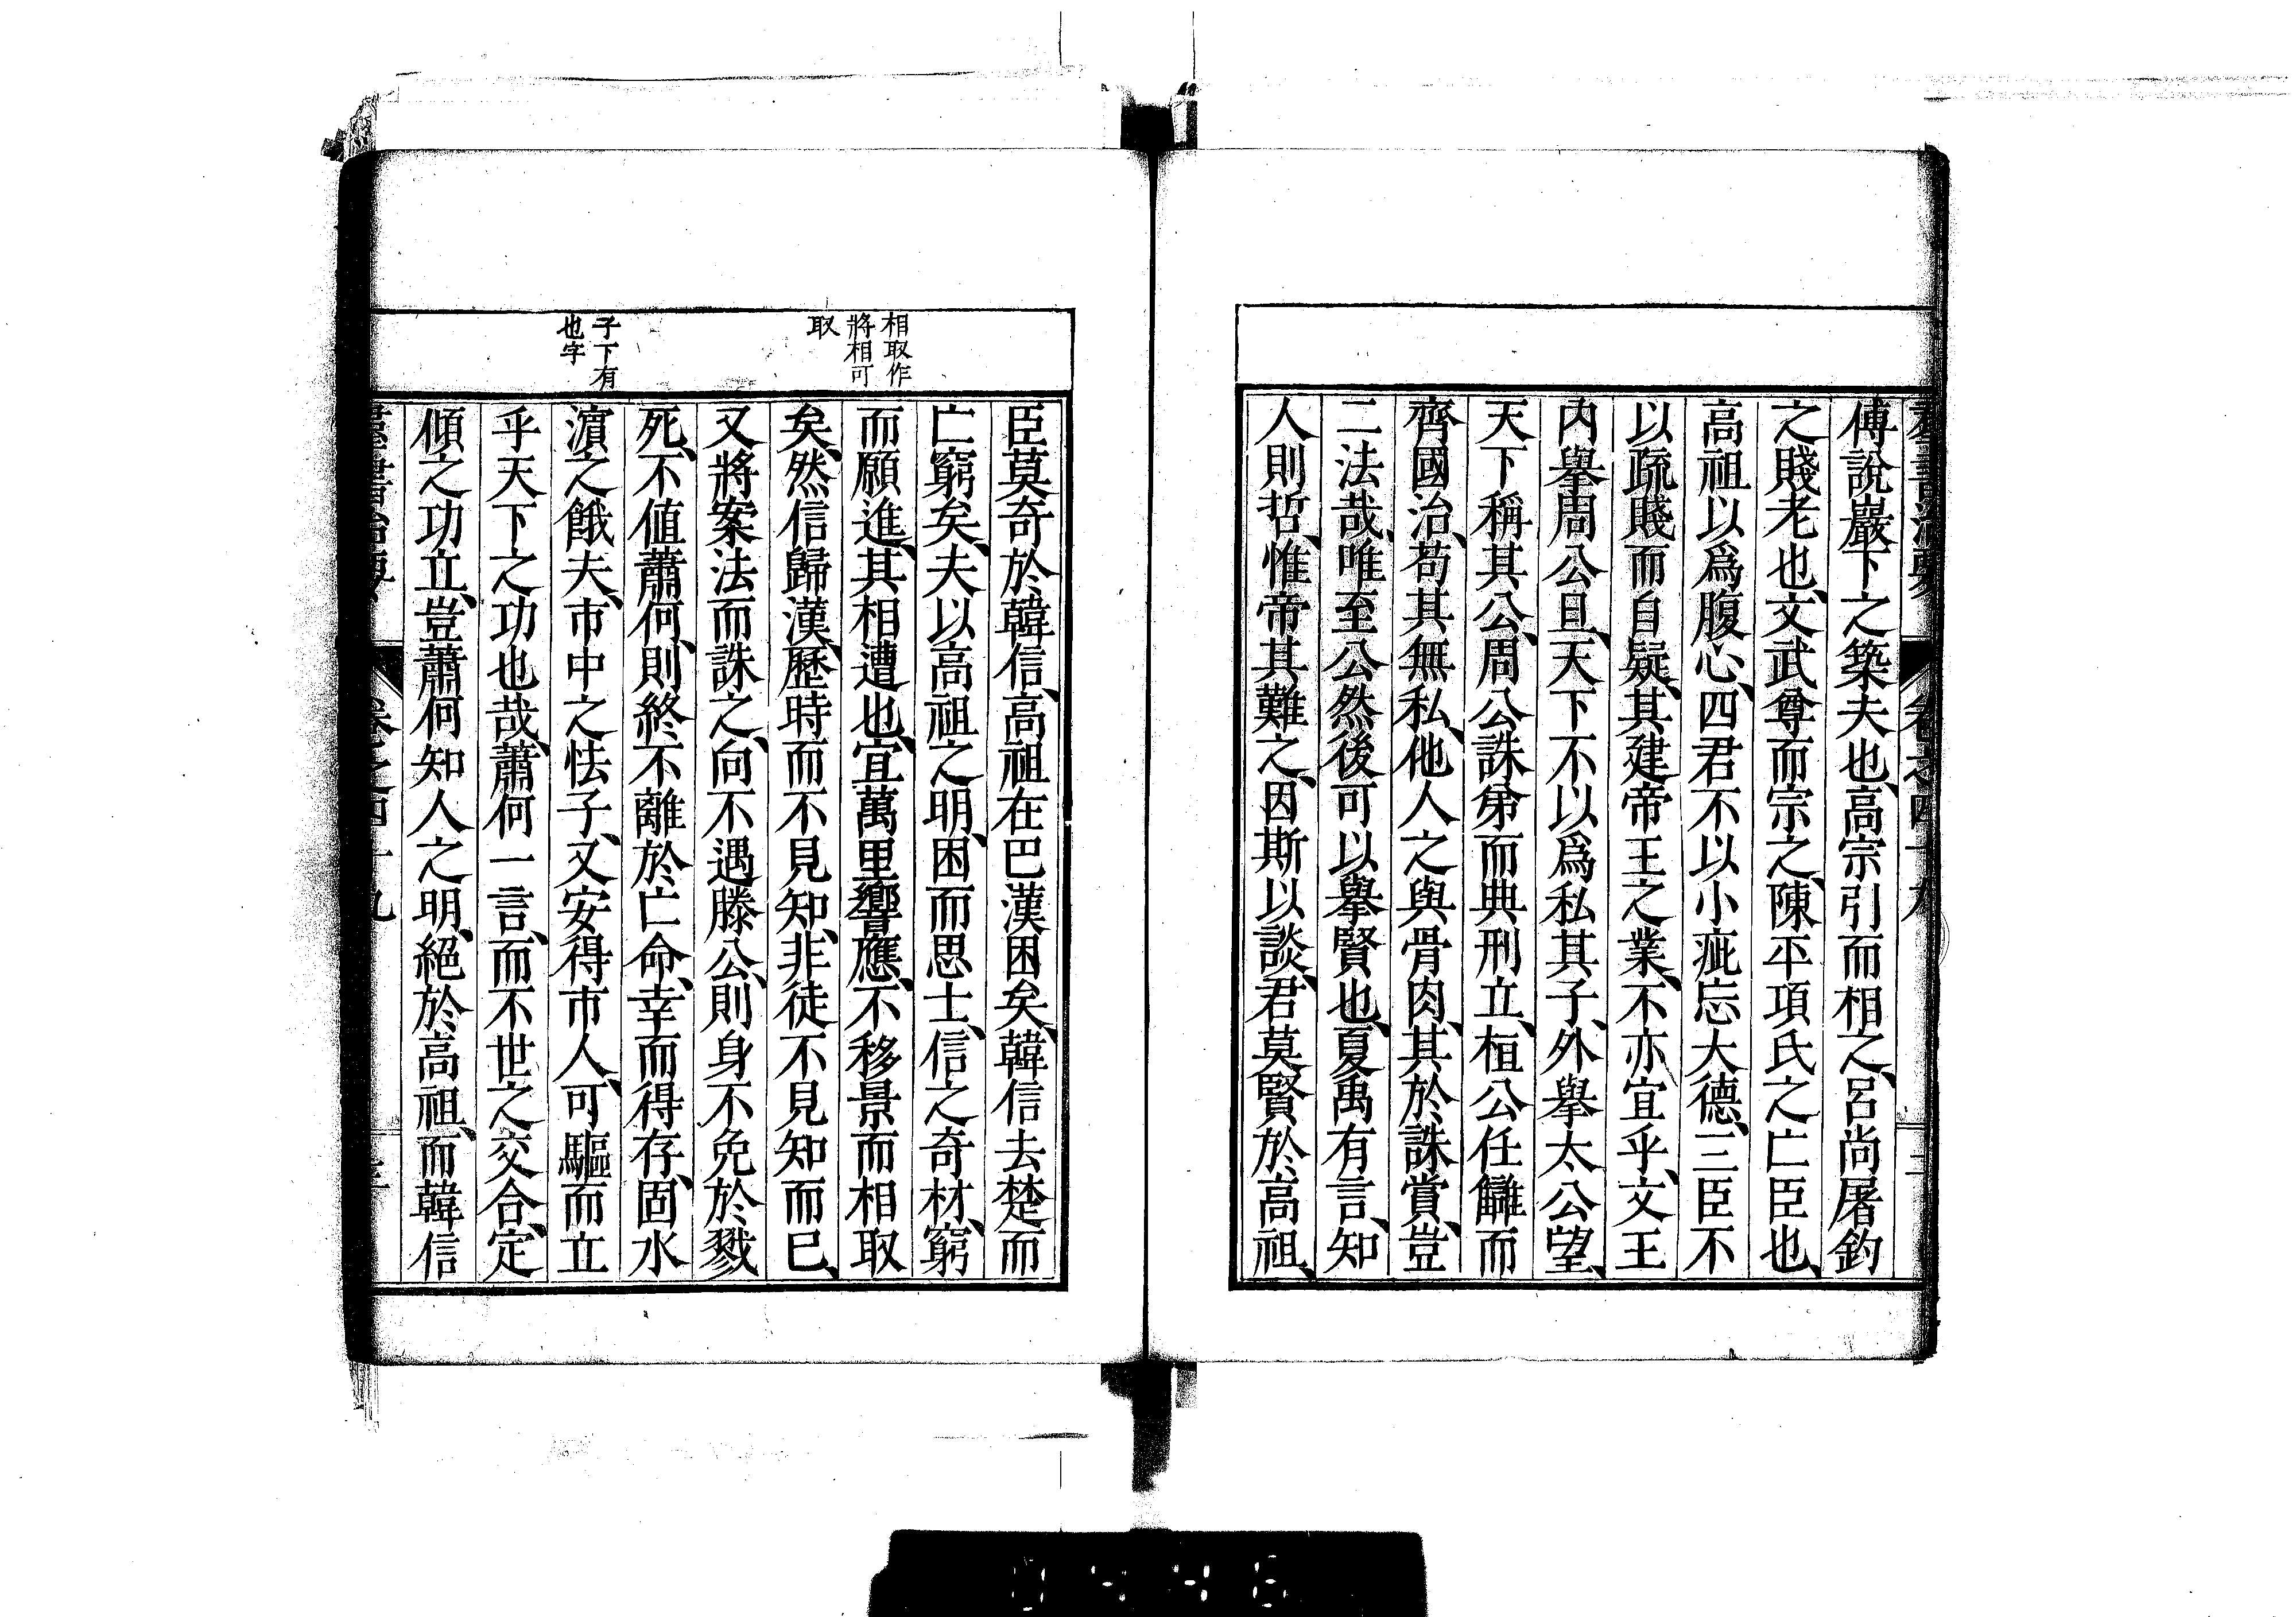 羣書治要 卷之四十九 二
傅說巖下之築夫也、高宗引而相之、呂尚屠釣
之賤老也、文武尊而宗之、陳平項氏之亡臣也、
高祖以爲腹心、四君不以小疵忘大德、三臣不
以疏賤而自疑、其建帝王之業、不亦宜乎、文王
內擧周公旦、天下不以爲私其子、外擧太公望、
天下稱其公、周公誅弟而典刑立、桓公任讎而
齊國治、苟其無私、他人之與骨肉、其於誅賞、豈
二法哉、唯至公然後可以擧賢也、夏禹有言、知
人則哲、惟帝其難之、因斯以談、君莫賢於高祖、
臣莫奇於韓信、高祖在巴漢困矣、韓信去楚而
亡窮矣、夫以高祖之明、困而思士、信之奇材、窮
而願進、其相遭也、宜萬里響應、不移景而相取
矣、然信歸漢、歷時而不見知、非徒不見知而已、
又將案法而誅之、向不遇滕公、則身不免於戮
死、不値蕭何、則終不離於亡命、幸而得存、固水
濵之餓夫、市中之怯子、又安得市人、可驅而立
乎天下之功也哉、蕭何一言、而不世之交合、定
傾之功立、豈蕭何知人之明、絕於高祖、而韓信
羣書治要 卷之四十九
相取作
將相可
取
子下有
也字